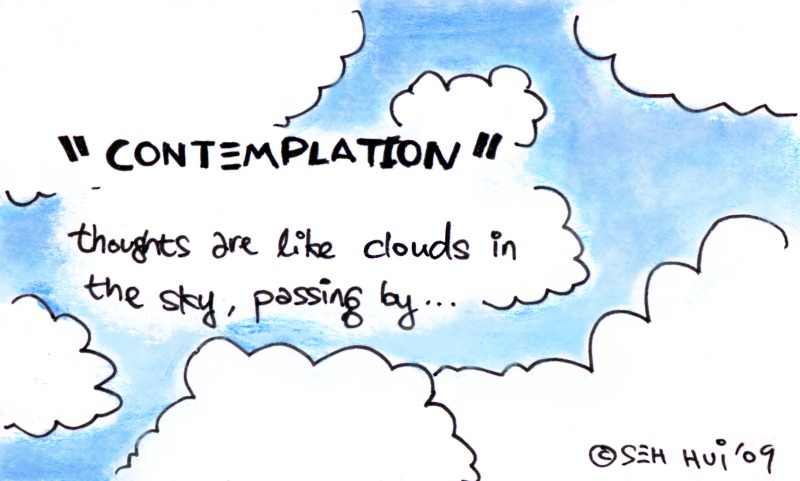 "CONTEMPLATION"
thoughts are like clouds in
the sky, passing by...
© SEH HUI '09